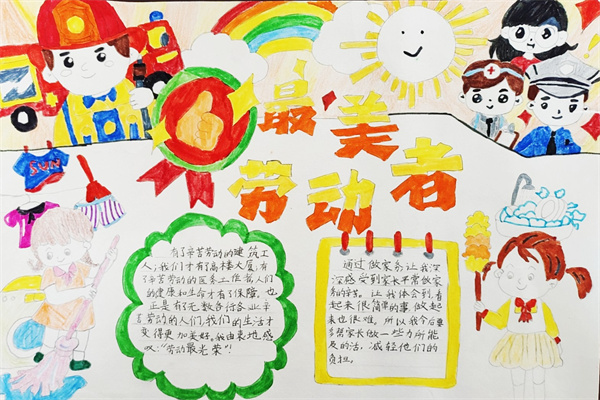 最美
劳动者
有了辛苦劳动的建筑工
人,我们才有了高楼大厦,有
了辛苦劳动的医务工作者人们
的健康和生命才有了保障,也
正是有了无数各行各业辛
苦劳动的人们,我们的生活才
变得更加美好。我由衷地感
叹:“劳动最光荣”!
通过做家务让我深
深感受到家长平常做家
务的辛苦。让我体会到看
起来很简单的事,做起
来也很难,所以我今后要
多帮家长做一些力所能
及的活,减轻他们的
负担。